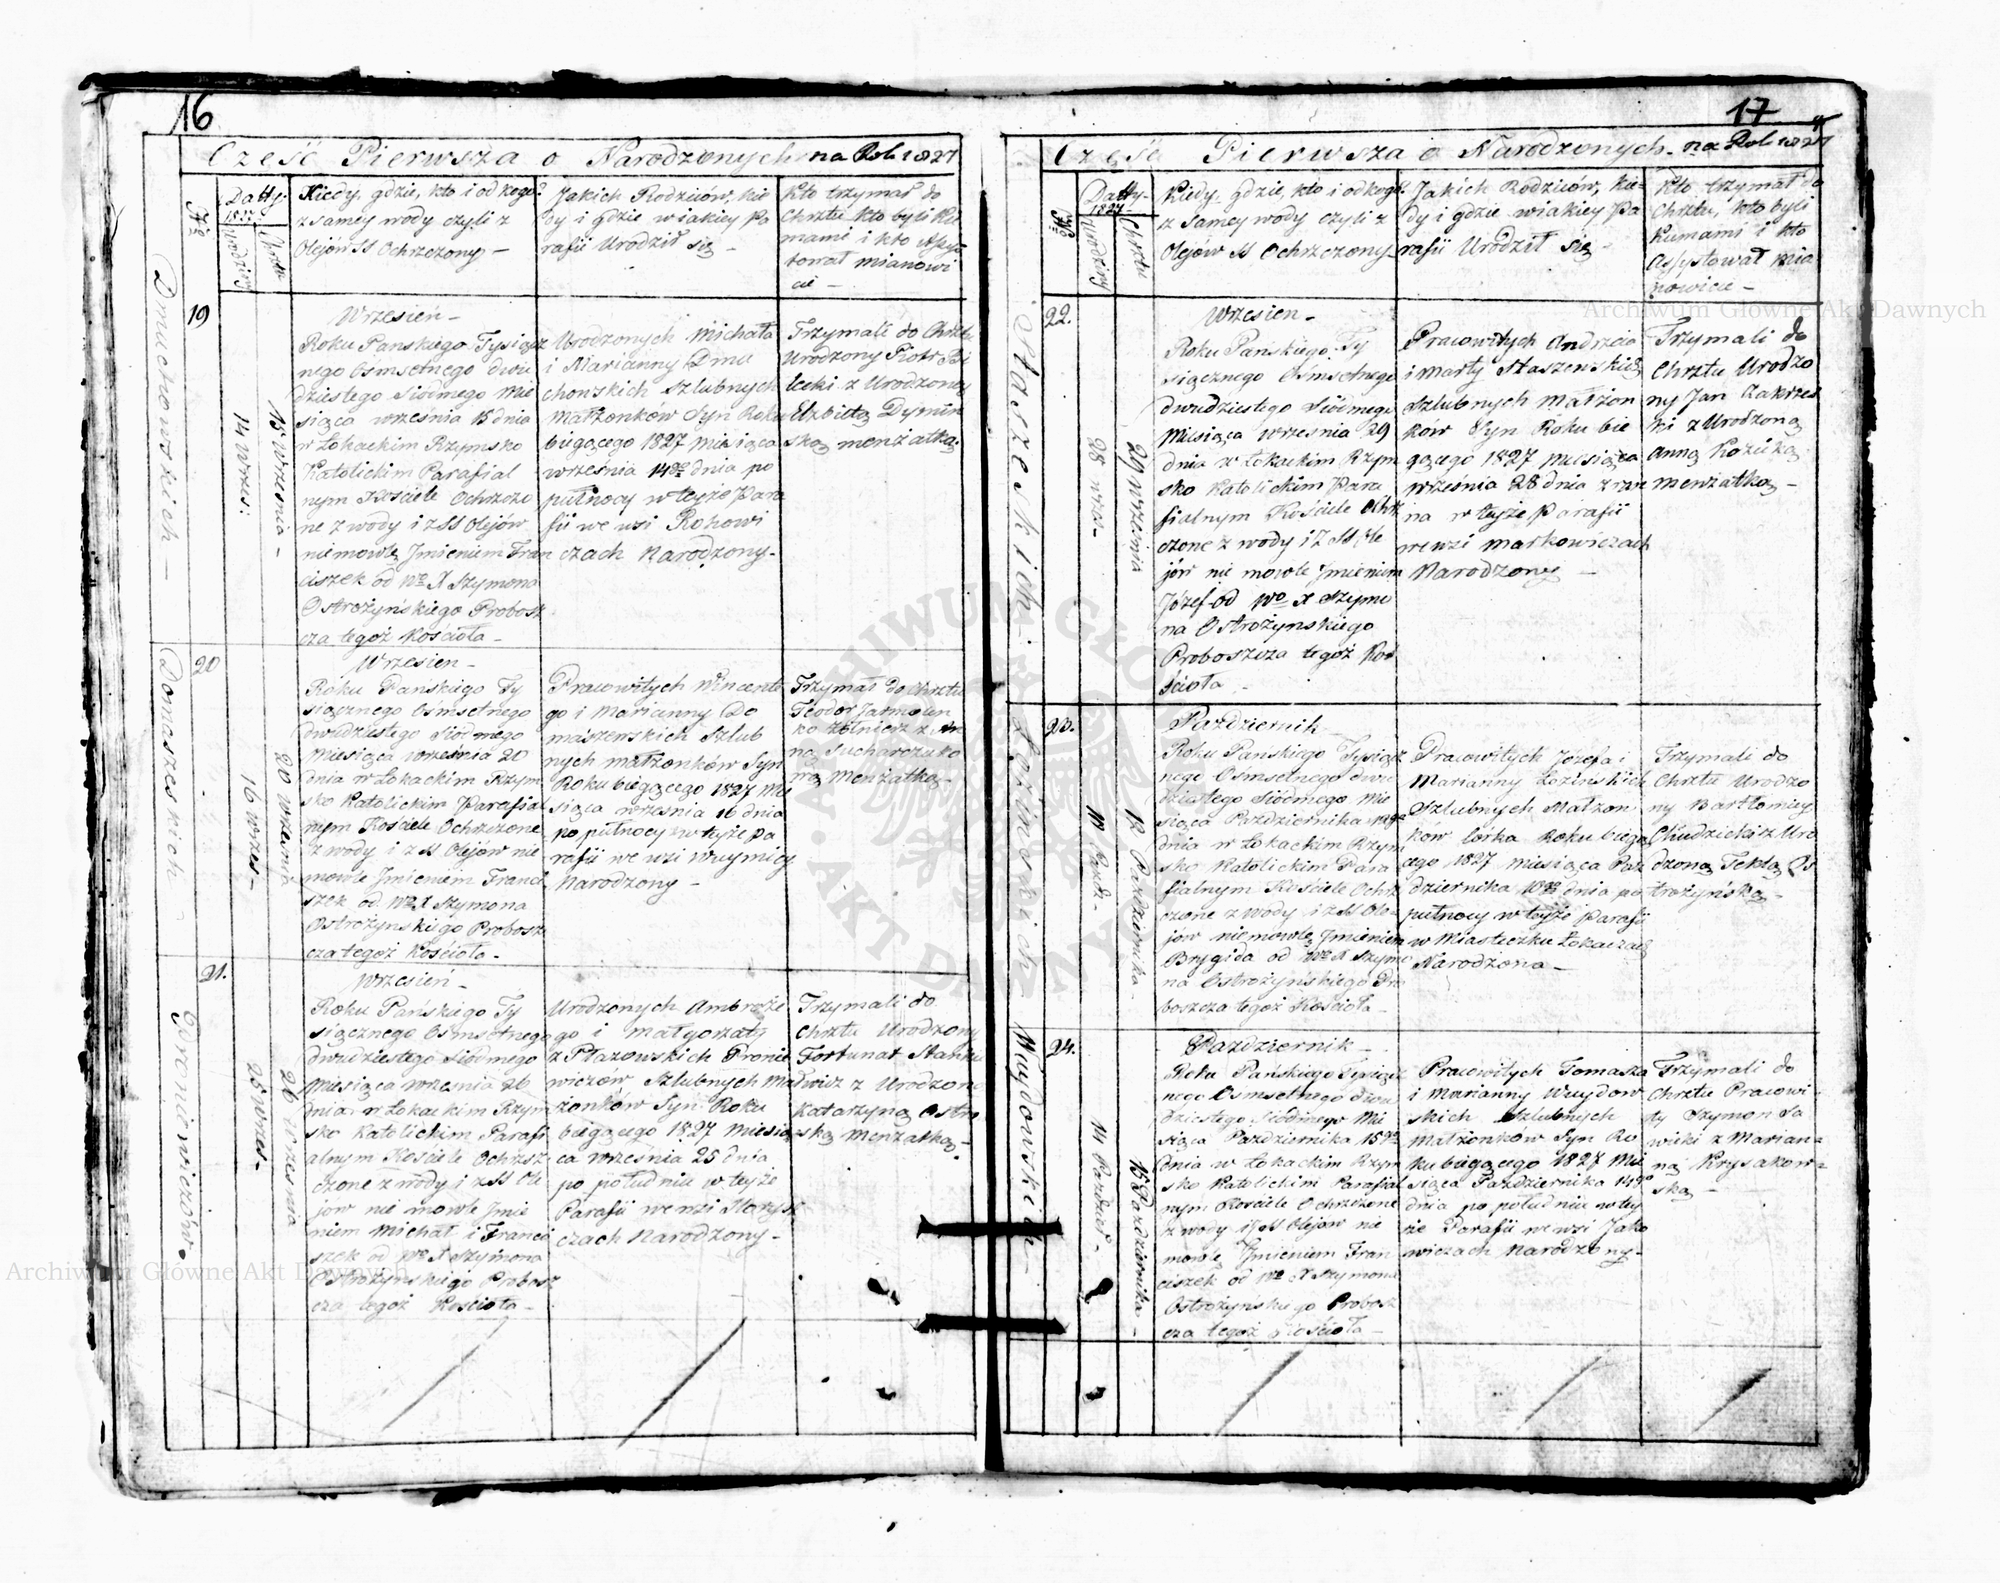 16
Część Pierwsza o Narodzonych na Rok 1827
No
Datty
1827
Urodziny
Chrztu
Kiedy, gdzie, kto i od kogo?
z samey wody czyli z
Olejów SS Ochrzczony —
Jakich Rodziców, kie
dy i gdzie w iakiey Pa
rafii Urodził się —
Kto trzymał do
Chrztu kto byli Ku
mami i kto Assys
tował mianowi
cie —
Dmuchowskich —
19
14 Wrześ:
15 Września —
Wrzesień —
Roku Panskiego Tysiącz
nego Ośmsetnego dwu
dziestego Siódmego Mie
siąca września 15 dnia
w Łokackim Rzymsko
Katolickim Parafial
nym Kościele Ochrzczo
ne z wody i z SS Olejów
niemowle Jmieniem Fran
ciszek od Wo X Szymona
Ostrożyńskiego Probosz
cza tegoż Kościoła —
Urodzonych Michała
i Marianny Dmu
chowskich Szlubnych
Małżonków Syn Roku
biegącego 1827 Miesiąca
września 14go dnia po
pułnocy w teyże Para
fii we wsi Rohowi
czach Narodzony —
Trzymali do Chrztu
Urodzony Piotr Bi
lecki z Urodzoną
Elżbietą Dymin
ską menżatką.
Domaszeskich —
20
16 wrześ —
20 wrzesnia
Wrzesien —
Roku Pańskiego Ty
siącznego Ośmsetnego
dwudziestego Siódmego
Miesiąca września 20
dnia w Łokackim Rzym
sko Katolickim Parafial
nym Kosciele Ochrzczone
z wody i z SS Olejów nie
mowle Jmieniem Franci
szek od Wo X Szymona
Ostrożynskiego Probosz
cza tegoż Kościoła —
Pracowitych Wincente
go i Marianny Do
maszewskich Szlub
nych małżonków Syn
Roku biegącego 1827 Mie
siąca września 16 dnia
po pułnocy w teyże Pa
rafii we wsi Wuymicy
Narodzony —
Trzymał do Chrztu
Teodor Jarmolen
ko żołnierz z An
ną Sucharczuko
wą Menżatką —
21.
25 Wrześ —
26 Wrzesnia
Wrzesień —
Roku Pańskiego Ty
siącznego Ośmsetnego
dwudziestego Siódmego
Miesiąca wrzesnia 26
dnia w Łokackim Rzym
sko Katolickim Parafi
alnym Kościele Ochrz
czone z wody i z SS Ole
jow nie mowle Jmie
niem Michał i Franci
szek od Wo X Szymona
Ostrożynskiego Probosz
cza tegoż Kościoła —
Urodzonych Ambroże
go i Małgorzaty
z Płazowskich
Szlubnych Mał
żonków Syn Roku
biegącego 1827 Miesią
ca Września 25 dnia
po południu w teyże
Parafii we wsi
czach Narodzony —
Trzymali do
Chrztu Urodzony
Fortunat Stanki
wicz z Urodzoną
Katarzyną Ostro
ską Menżatką —
17
Część Pierwsza o Narodzonych — na Rok 1827
No
Datty
1827
Urodziny
Chrztu
Kiedy, gdzie, kto i od kogo?
z Samey wody czyli z
Olejów SS Ochrzczony —
Jakich Rodziców, Kie
dy i gdzie w iakiey Pa
rafii Urodził się —
Kto trzymał do
Chrztu, kto byli
Kumami i kto
Assystował mia
nowicie —
Staszeskich —
22.
28 wrześ —
29 września
Wrzesien —
Roku Panskiego Ty
siącznego Ośmsetnego
dwudziestego Siódmego
Miesiąca września 29
dnia w Łokackim Rzym
sko Katolickim Para
fialnym Kościele Ochrz
czone z wody i z SS Ole
jów nie mowle Jmieniem
Józef od Wo X Szymo
na Ostrożynskiego
Proboszcza tegoż Koś
ścioła —
Pracowitych Andrzeia
i Marty Staszewskich
Szlubnych Małżon
ków Syn Roku bie
gącego 1827 Miesiąca
września 28 dnia z ra
na w teyże Parafii
we wsi Markowiczach
Narodzony —
Trzymali do
Chrztu Urodzo
ny Jan Zakrzes
ki z Urodzoną
Anną Kozicką
menżatką —
Łozińskich
23.
10 Paźdz. —
12 Pazdziernika —
Pazdziernik —
Roku Panskiego Tysiącz
nego Ośmsetnego dwu
dziestego Siódmego Mie
siąca Pazdziernika 12go
dnia w Łokackim Rzym
sko Katolickim Para
fialnym Kościele Ochrz
czone z wody i z SS Ole
jów niemowle Jmieniem
Brygida od Wo X Szymo
na Ostrożyńskiego Pro
boszcza tegoż Kościoła —
Pracowitych Józefa i
Marianny Łozińskich
Szlubnych Małżon
ków Córka Roku biegą
cego 1827 Miesiąca Paź
dziernika 10go dnia po
pułnocy w teyże Parafii
w Miasteczku Łokaczach
Narodzona —
Trzymali do
Chrztu Urodzo
ny Bartłomiey
Chudzicki z Uro
dzoną Teklą Os
trożyńską —
Wuydowskich —
24.
14 Pazdzier —
15 Pazdziernika —
Pazdziernik —
Roku Pańskiego Tysiącz
nego Ośmsetnego dwu
dziestego Siódmego Mie
siąca Pazdziernika 15go
dnia w Łokackim Rzym
sko Katolickim Parafial
nym Kosciele Ochrzczone
z wody i SS Olejow nie
mowle Jmieniem Fran
ciszek od Wo X Szymona
Ostrożynskiego Probosz
cza tegoż Kościoła —
Pracowitych Tomasza
i Marianny Wuydow
skich Szlubnych
Małżonkow Syn Ro
ku biegącego 1827 Mie
siąca Pazdziernika 14go
dnia po południu w tey
że Parafii we wsi Jako
wiczach Narodzony —
Trzymali do
Chrztu Pracowi
ty Szymon Sa
wicki z Marian
ną Krysakow
ską —
Archiwum Główne Akt Dawnych
Archiwum Główne Akt Dawnych
ARCHIWUM GŁÓWNE AKT DAWNYCH